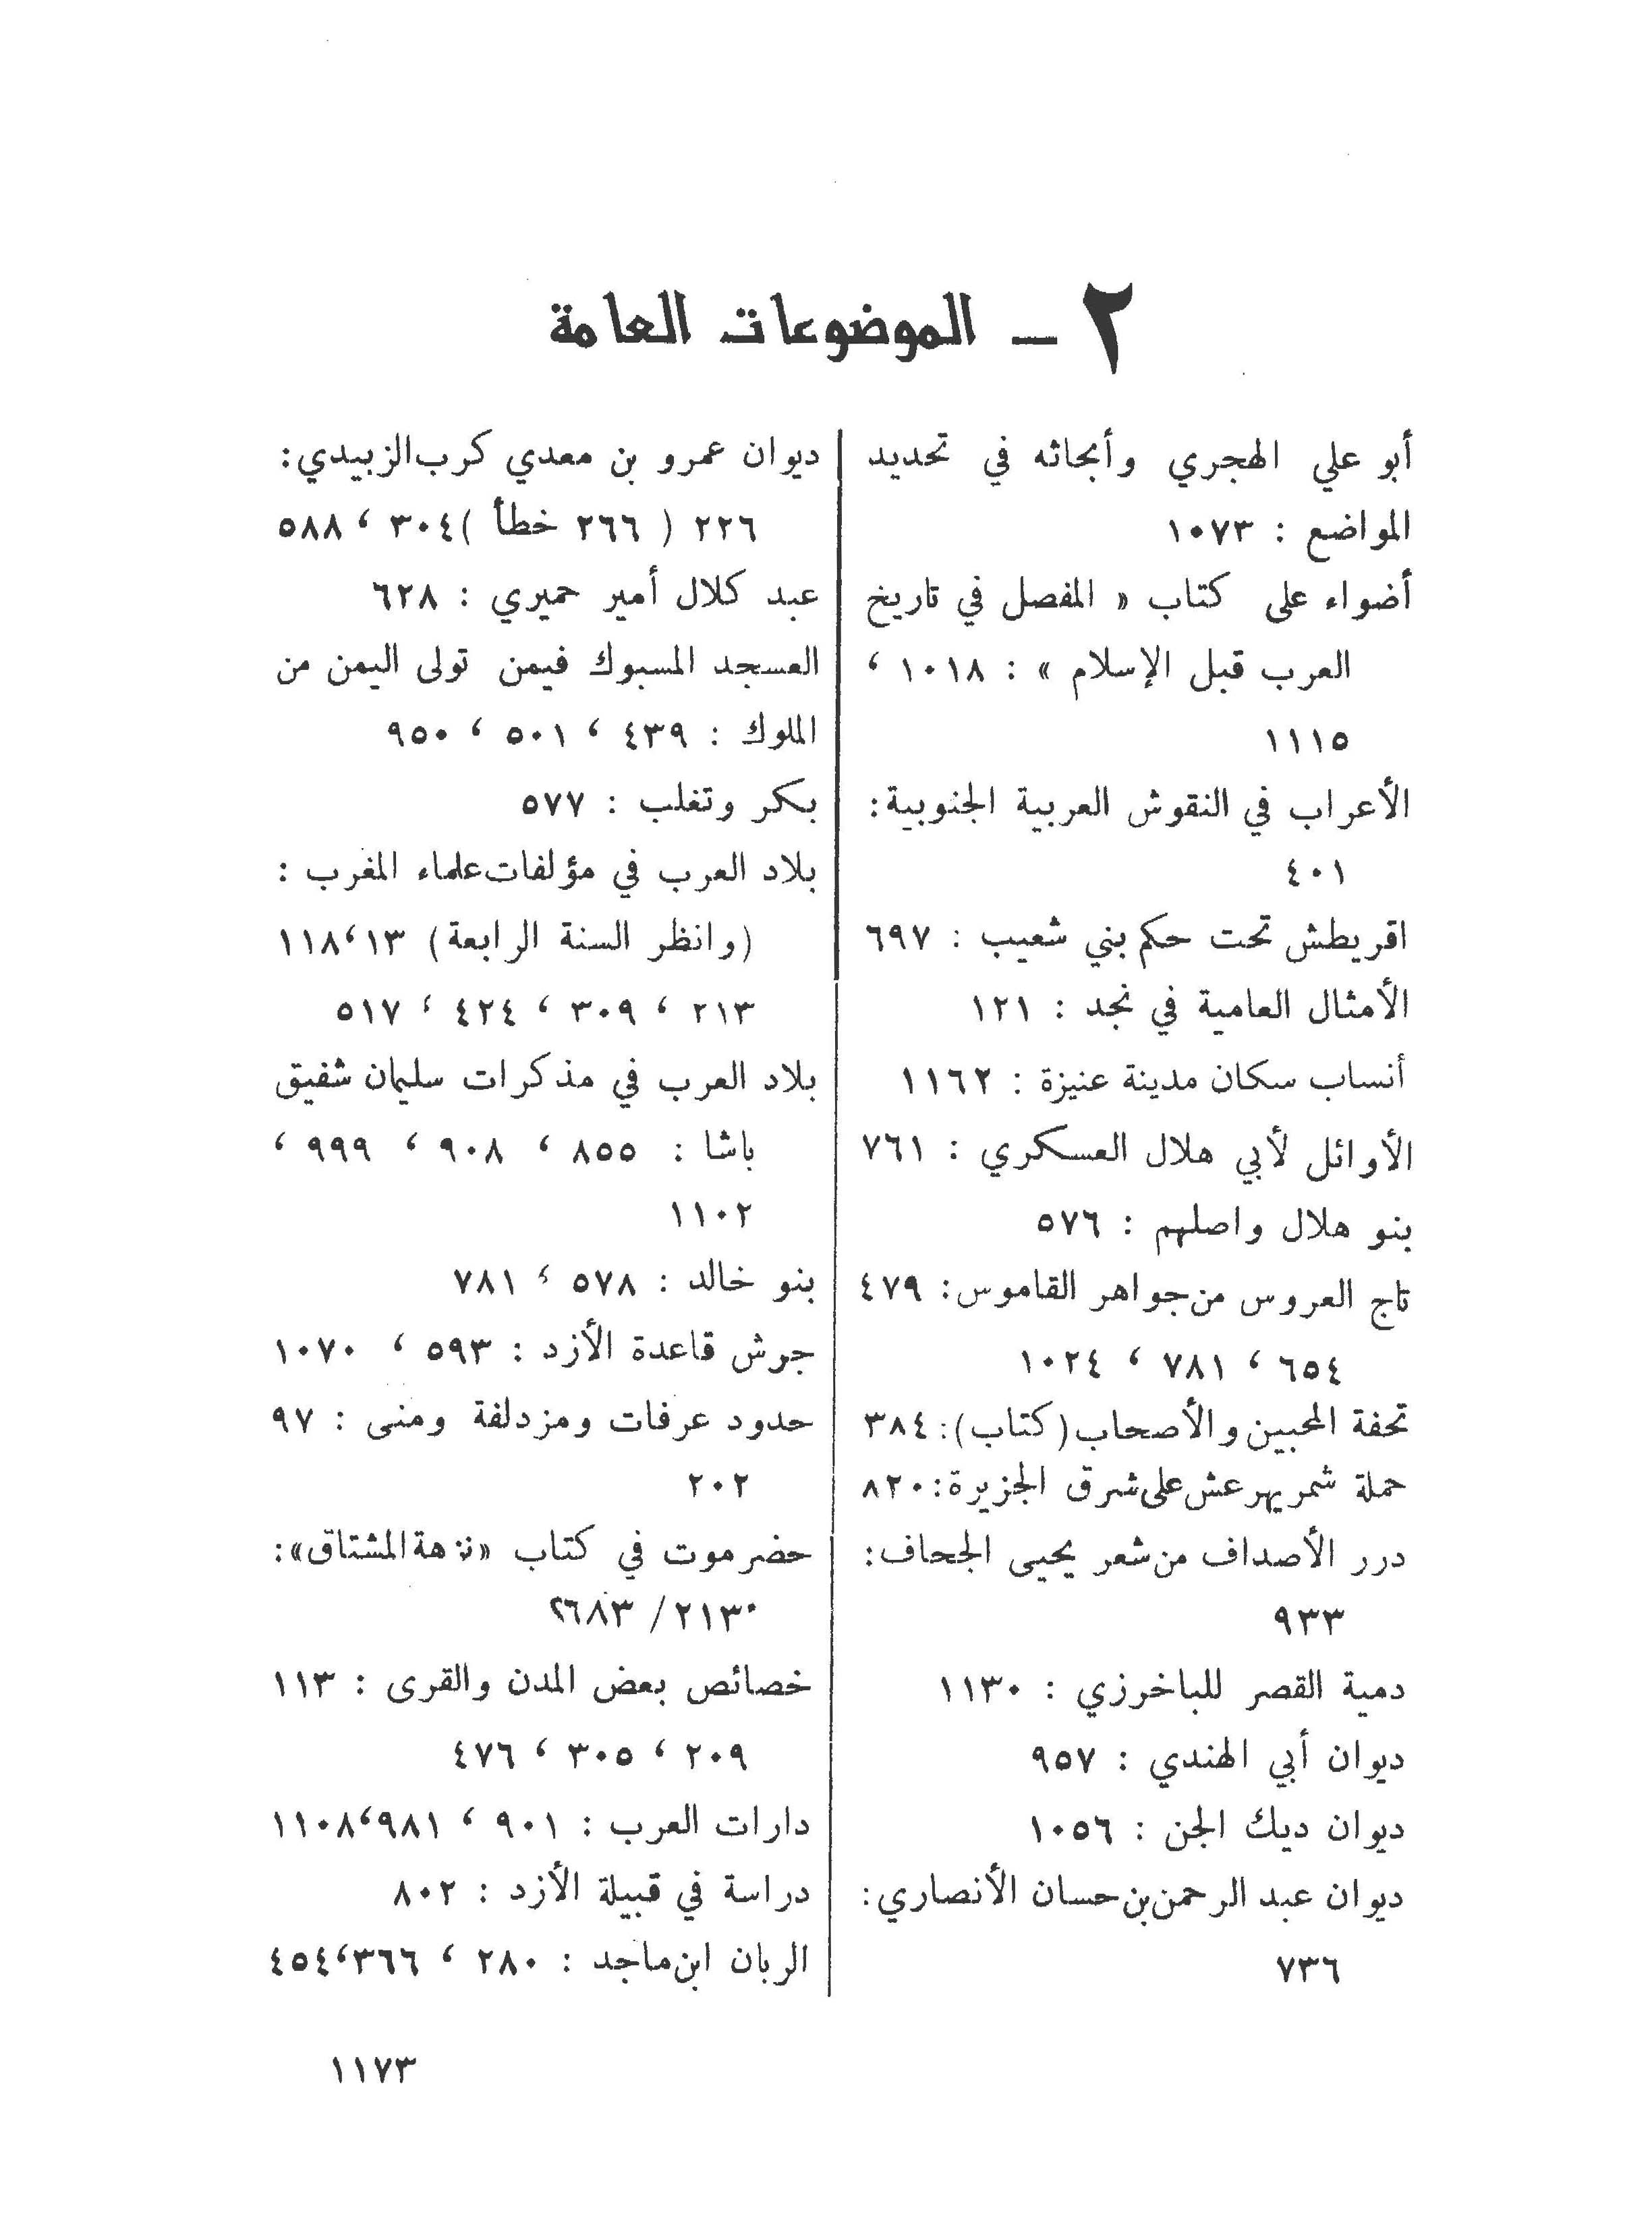 ٢ ـ الموضوعات العامة
أبو علي الهجري وأبحاثه في تحديد
المواضع : ١٠٧٣
أضواء على كتاب « المفصل في تاريخ
العرب قبل الإسلام » : ١٠١٨ ،
١١١٥
الأعراب في النقوش العربية الجنوبية:
٤٠١
اقريطش تحت حكم بني شعيب : ٦٩٧
الأمثال العامية في نجد : ١٢١
أنساب سكان مدينة عنيزة : ١١٦٢
الأوائل لأبي هلال العسكري : ٧٦١
بنو هلال واصلهم : ٥٧٦
تاج العروس من جواهر القاموس: ٤٧٩
٦٥٤ ، ٧٨١ ، ١٠٢٤
تحفة المحبين والأصحاب (كتاب): ٣٨٤
حملة شمر يهرعش على شرق الجزيرة: ٨٢٠
درر الأصداف من شعر يحيى الجحاف:
٩٣٣
دمية القصر للباخرزي : ١١٣٠
ديوان أبي الهندي : ٩٥٧
ديوان ديك الجن : ١٠٥٦
ديوان عبد الرحمن بن حسان الأنصاري:
٧٣٦
ديوان عمرو بن معدي كرب الزبيدي:
٢٢٦ ( ٢٦٦ خطأ )٣٠٤ ، ٥٨٨
عبد كلال أمير حميري : ٦٢٨
العسجد المسبوك فيمن تولى اليمن من
الملوك : ٤٣٩ ، ٥٠١ ، ٩٥٠
بكر وتغلب : ٥٧٧
بلاد العرب في مؤلفات علماء المغرب :
(وانظر السنة الرابعة) ١٣،١١٨
٢١٣ ، ٣٠٩ ، ٤٢٤ ، ٥١٧
بلاد العرب في مذكرات سليمان شفيق
باشا : ٨٥٥ ، ٩٠٨ ، ٩٩٩ ،
١١٠٢
بنو خالد : ٥٧٨ ، ٧٨١
جرش قاعدة الأزد : ٥٩٣ ، ١٠٧٠
حدود عرفات ومزدلفة ومنى : ٩٧
٢٠٢
حضرموت في كتاب «نزهة المشتاق»:
٢١٣/ ٦٨٣؟
خصائص بعض المدن والقرى : ١١٣
٢٠٩ ، ٣٠٥ ، ٤٧٦
دارات العرب : ٩٠١ ، ٩٨١،١١٠٨
دراسة في قبيلة الأزد : ٨٠٢
الربان ابن ماجد : ٢٨٠ ، ٣٦٦،٤٥٤
١١٧٣